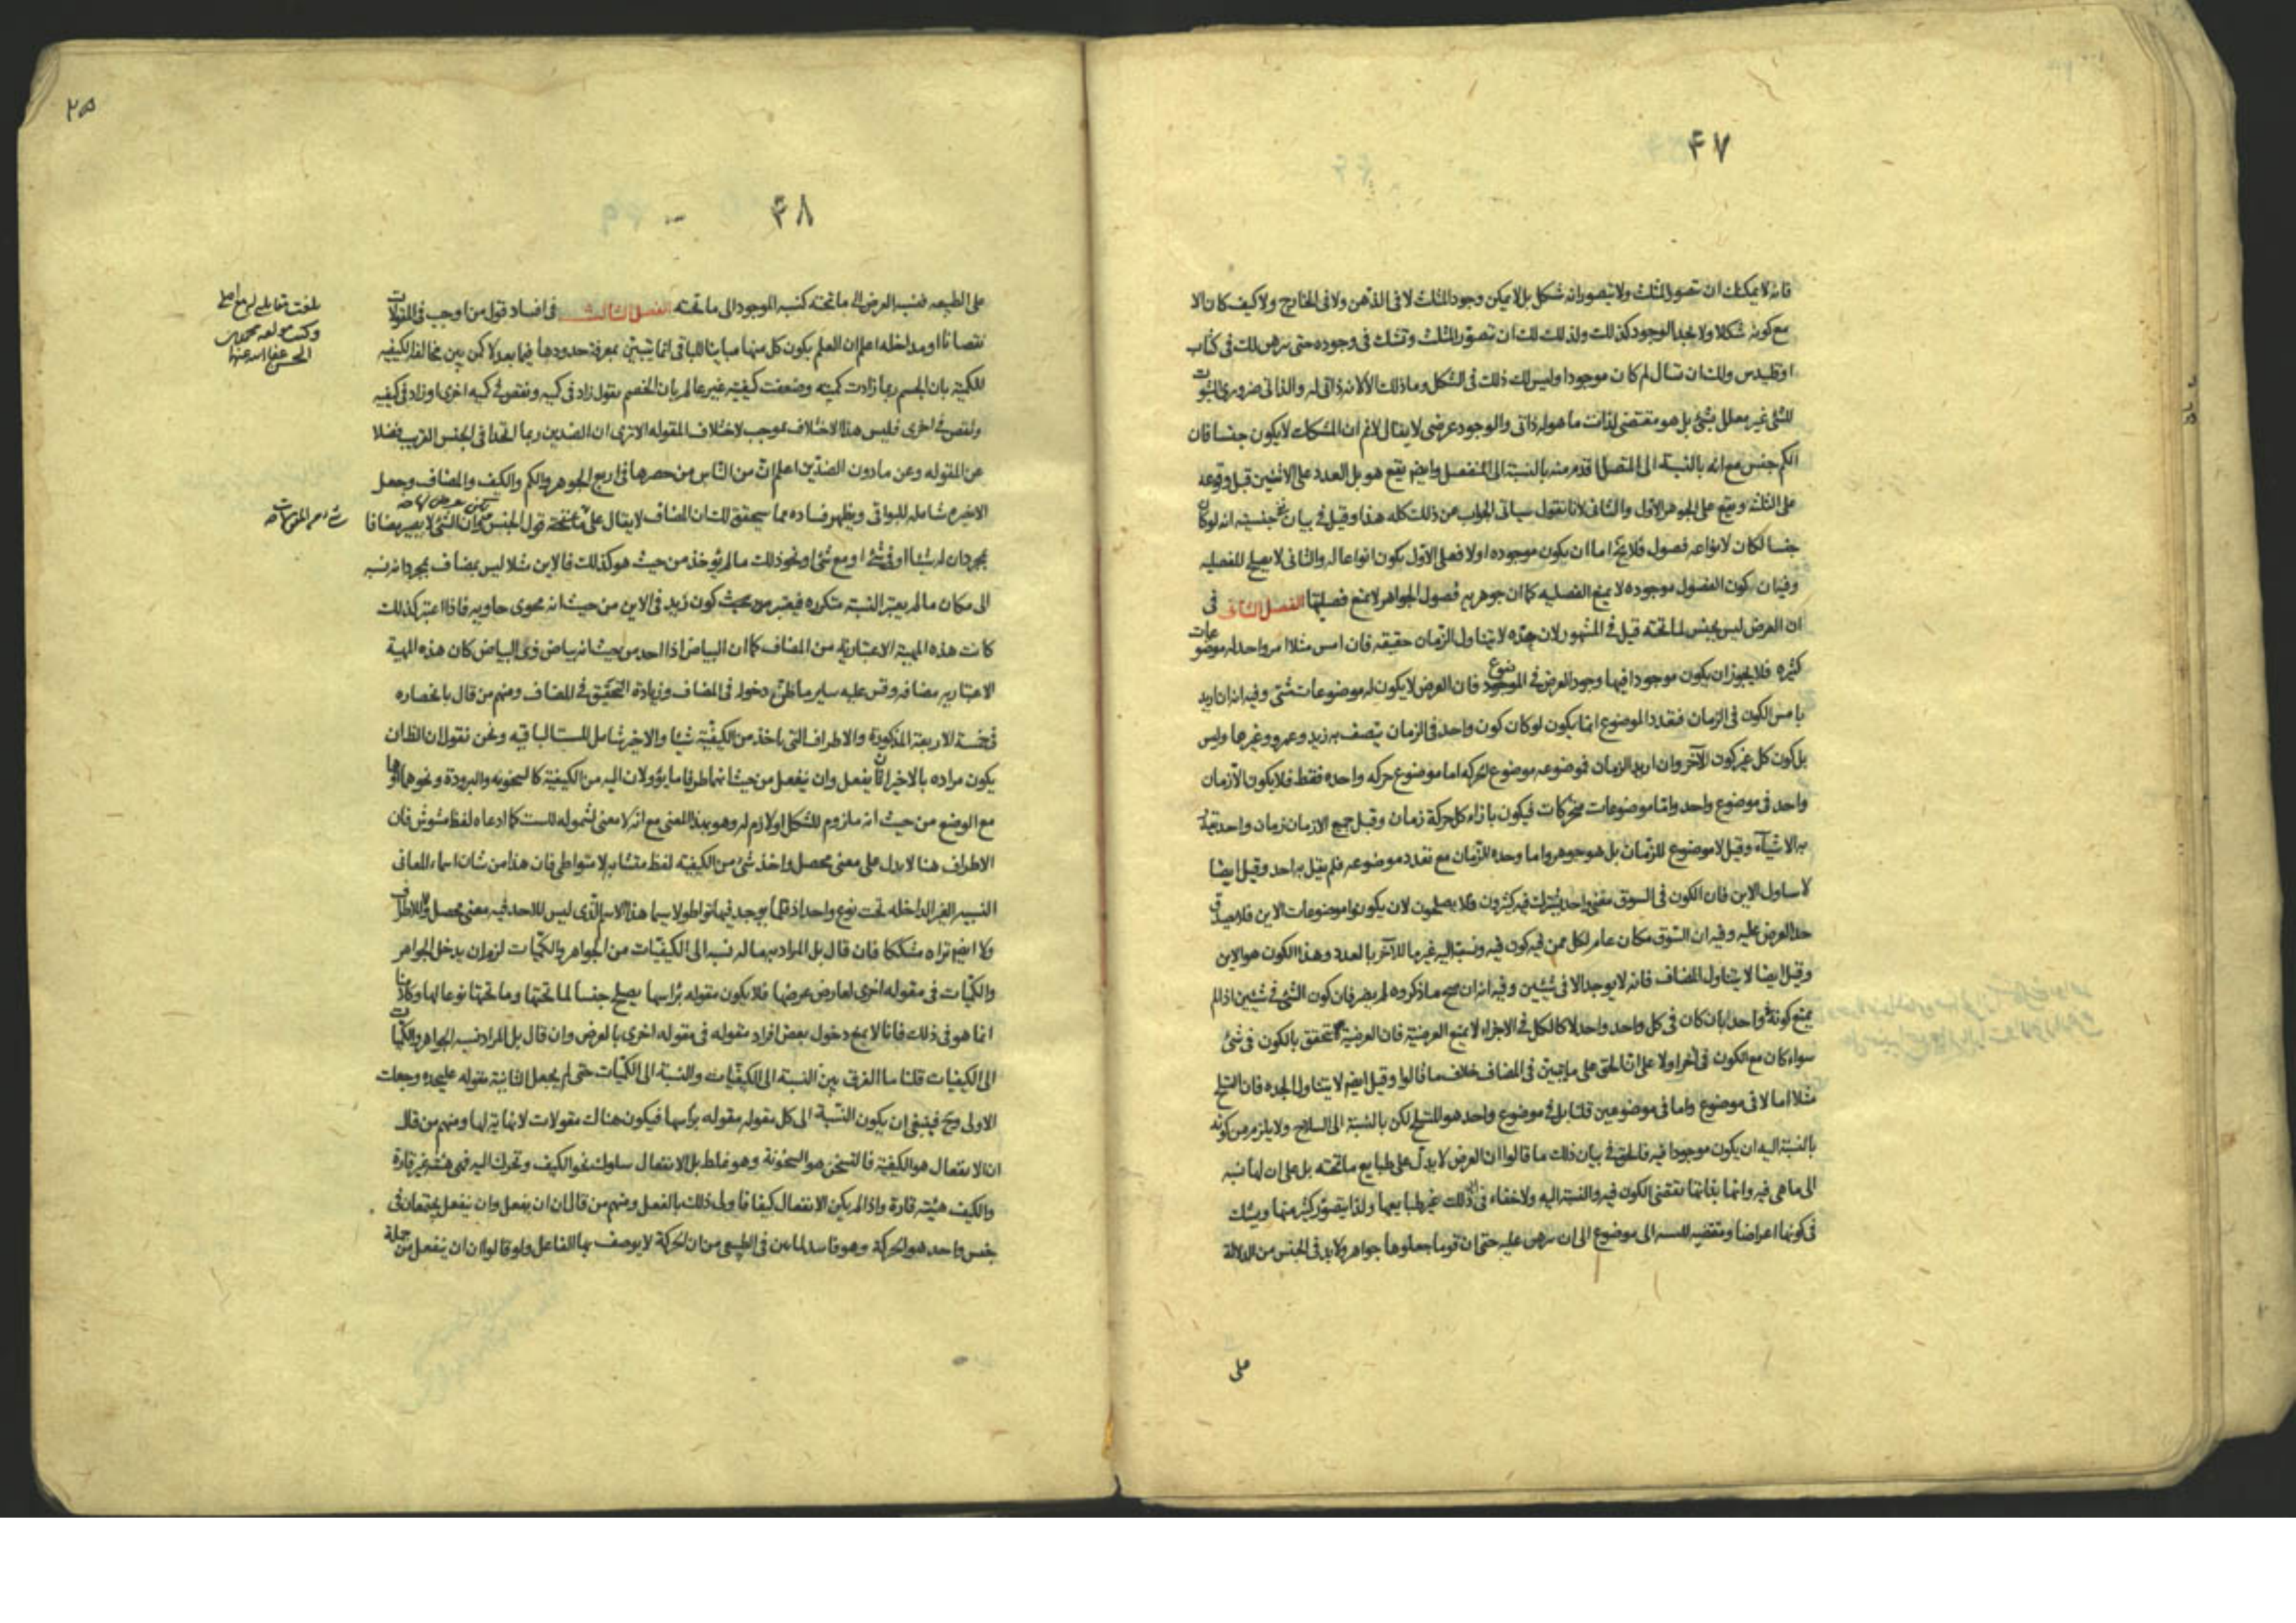 ۴۷
فانه لا يمكنك ان تتصور المثلث ولا تتصور انه شكل بل لا يمكن وجود المثلث لا فى الذهن ولا فى الخارج ولا كيف كان الا
مع كونه شكلا ولا يجد الوجود كذلك ولذلك لك ان تتصور المثلث وتشك فى وجوده حتى يبرهن لك فى كتاب
اوقليدس ولك ان تسال لم كان موجودا وليس لك ذلك فى الشكل وما ذلك الا لانه ذاتى له والذاتى ضرورى الثبوت
للشئ غير معلل بشئ بل هو مقتضى لذات ما هو له ذاتى والوجود عرضى لا يقال لانم ان المشكك لا يكون جنسا فان
الكم جنس مع انه بالنسبة الى المتصل اقدم منه بالنسبة الى المنفصل وايضا يقع هو بل العدد على الاثنين قبل وقوعه
على الثلثة ويقع على الجوهر الاول والثانى لانا نقول سياتى الجواب عن ذلك كله هذا وقيل فى بيان جنسيته انه لو كان
جنسا لكان لانواعه فصول فلا يخ اما ان يكون موجوده او لا فعلى الاول يكون انواعا له والثانى لا يصلح للفصليه
وفيه ان كون الفصول موجوده لا يمنع الفصليه كما ان جوهريه فصول الجواهر لا تمنع فصليتها الفصل الثانى فى
ان العرض ليس بجنس لما تحته قيل فى المشهور لان حده لا يتناول الزمان حقيقه فان امس مثلا امر واحد له موضوعات
كثيره فلا يجوز ان يكون موجودا فيها وجود العرض فى الموضوع فان العرض لا يكون له موضوعات شتى وفيه انه ان اريد
بامس الكون فى الزمان فتعدد الموضوع انما يكون لو كان كون واحد فى الزمان يتصف به زيد وعمرو وغيرها وليس
بل كون كل غير كون الآخر وان اريد الزمان فموضوعه موضوع الحركه اما موضوع حركه واحده فقط فلا يكون الا زمان
واحد فى موضوع واحد واما موضوعات متحركات فيكون بازاء كل حركة زمان وقيل جمع الازمان زمان واحد
به الاشياء وقيل لا موضوع للزمان بل هو جوهر واما وحده الزمان مع تعدد موضوعه فلم يقل به احد وقيل ايضا
لا يتناول الاين فان الكون فى السوق معنى واحد يشترك فيه كثيرون فلا يصلحون لان يكونوا موضوعات الاين فلا يصدق
حد العرض عليه وفيه ان السوق مكان عام لكل ممن فيه كون فيه ونسبة اليه غير ما للآخر بالعدد وهذا الكون هو الاين
وقيل ايضا لا يتناول المضاف فانه لا يوجد الا فى شيئين وفيه انه ان صح ما ذكروه لم يضر فان كون الشئ فى شيئين اذا لم
يمنع كونه واحدا بان كان فى كل واحد واحد لا كالكل فى الاجزاء لا يمنع العرضية فان العرضية تتحقق بالكون فى شئ
سواء كان مع الكون فى آخر او لا على ان الحق على ما يتبين فى المضاف خلاف ما قالوا وقيل ايضا لا يتناول الجده فان التسلح
مثلا اما لا فى موضوع واما فى موضوعين قلنا بل فى موضوع واحد هو المتسلح لكن بالنسبة الى السلاح ولا يلزم من كونه
بالنسبة اليه ان يكون موجودا فيه فالحق فى بيان ذلك ما قالوا ان العرض لا يدل على طبايع ما تحته بل على ان لها نسبه
الى ما هى فيه وانها بذاتها تقتضى الكون فيه والنسبة اليه ولا خفاء فى ان ذلك غير طبايعها ولذا يتصور كثير منها ويشك
فى كونها اعراضا ومقتضيه للنسبه الى موضوع الى ان يبرهن عليه حتى ان قوما جعلوها جواهر ولا بد فى الجنس من الدلالة
على
۲۵
۴۸
على الطبيعه فنسبه العرض الى ما تحته كنسبه الموجود الى ما تحته الفصل الثالث فى افساد قول من اوجب فى المقولات
نقصانا او مداخله اعلم ان العلم بكون كل منها مباينا للباقى انما يتبين بمعرفة حدودها فيما بعد لا كمن بين مخالفه الكيفيه
للكمية بان الجسم ربما زادت كميته وضعفت كيفيته غير عالم بان الخصم يقول زاد فى كميه ونقص فى كميه اخرى او زاد فى كيفيه
ونقص فى اخرى فليس هذا الاختلاف بموجب لاختلاف المقوله الا ترى ان الضدين ربما اتحدا فى الجنس القريب فضلا
عن المقوله وعن ما دون الضدين اعلم ان من الناس من حصرها فى اربع الجوهر والكم والكيف والمضاف وجعل
الاخيره شامله للبواقى ويظهر فساده مما سيحقق لك ان المضاف لا يقال على ما تحته قول الجنس وان الشئ لا يصير مضافا
بمجرد ان له شيئا او فى شئ او مع شئ او نحو ذلك ما لم يؤخذ من حيث هو كذلك فالاين مثلا ليس بمضاف بمجرد انه نسبه
الى مكان ما لم يعتبر النسبة متكرره فيعتبر من حيث كون زيد فى الاين من حيث انه محوى حاويه فاذا اعتبر كذلك
كانت هذه المهية الاعتبارية من المضاف كما ان البياض اذا احد من حيث انه بياض ذى البياض كان هذه المهية
الاعتباريه مضافه وقس عليه ساير ما ظن دخوله فى المضاف وزيادة التحقيق فى المضاف ومنهم من قال بانحصاره
فى خمسة الاربعة المذكورة والاطراف التى ياخذ من الكيفية شيئا والاخير شامل للستة الباقيه ونحن نقول ان الظ ان
يكون مراده بالاخير ان يفعل وان ينفعل من حيث انهما طرفا ما يؤولان اليه من الكيفية كالسخونه والبرودة ونحوهما
مع الوضع من حيث انه ملزوم للشكل او لازم له وهو بهذا المعنى مع انه لا معنى لشموله للست كما ادعاه لفظ مشوش فان
الاطراف هنا لا يدل على معنى محصل واخذ شئ من الكيفيه لفظ متشابه لا متواطى فان هذا من شان اسماء المعانى
النسبيه الغير الداخله تحت نوع واحد اذ قلما يوجد فيها تواطو لا سيما هذا الاسم الذى ليس للاخذ فيه معنى محصل ولا للاطراف
ولا ايضا نراه مشككا فان قال بل المراد به ما له نسبه الى الكيفيات من الجواهر والكميات لزم ان يدخل الجواهر
والكميات فى مقوله اخرى لعارض عرضها فلا يكون مقوله براسها يصلح جنسا لما تحتها وما تحتها نوعا لها وكلامنا
انما هو فى ذلك فانا لا نمنع دخول بعض افراد مقوله فى مقوله اخرى بالعرض وان قال بل المراد نسبه الجواهر والكميات
الى الكيفيات قلنا ما الفرق بين النسبة الى الكيفيات والنسبة الى الكميات حتى لم يجعل الثانية مقوله عليحده وجعلت
الاولى وح فينبغى ان يكون النسبة الى كل مقوله مقوله براسها فيكون هناك مقولات لا نهاية لها ومنهم من قال
ان الانفعال هو الكيفية فالتسخن هو السخونة وهو غلط بل الانفعال سلوك نحو الكيف وتحرك اليه فهى هيئة غير قارة
والكيف هيئة قارة واذا لم يكن الانفعال كيفا فاولى ذلك بالفعل ومنهم من قال ان ان يفعل وان ينفعل يجتمعان فى
جنس واحد هو الحركة وهو فاسد لما بين فى الطبيعى من ان الحركة لا يوصف بها الفاعل ولو قالوا ان ان ينفعل من جملة
بلغت مقابله
الحسن عفا الله عنهما